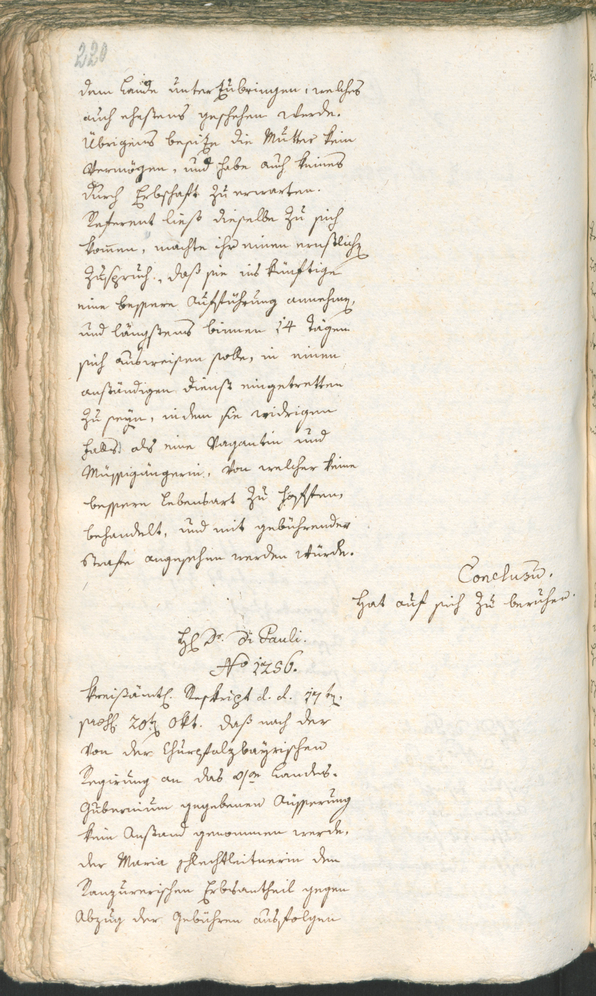 220
dem Lande unterzubringen, welches
auch ehestens geschehen werde.
Übrigens besitze die Mutter kein
Vermögen, und habe auch keines
durch Erbschaft zu erwarten.
Referent ließ dieselbe zu sich
kommen, machte ihr einen ernstlichen
Zuspruch, daß sie ins künftige
eine bessere Aufführung annehmen,
und längstens binnen 14 Tägen
sich ausweisen solle, in einen
anständigen Dienst eingetretten
zu seyn, indem sie widrigen
falls als eine Vagantin und
Müssigängerin, von welcher keine
bessere Lebensart zu hoffen,
behandelt, und mit gebührender
Strafe angesehen werden würde.
Conclusum.
Hat auf sich zu beruhen.
H. Dr. Di Pauli.
No 1256.
Kreisämtl. Reskript d. d. 17t
20t Okt. daß nach der
von der Churpfalzbayrischen
Regirung an das Landes-
Gubernium gegebenen Äusserung
kein Anstand genommen werde,
der Maria Schlechtleitnerin den
Ranzurerischen Erbsantheil gegen
Abzug der Gebühren ausfolgen